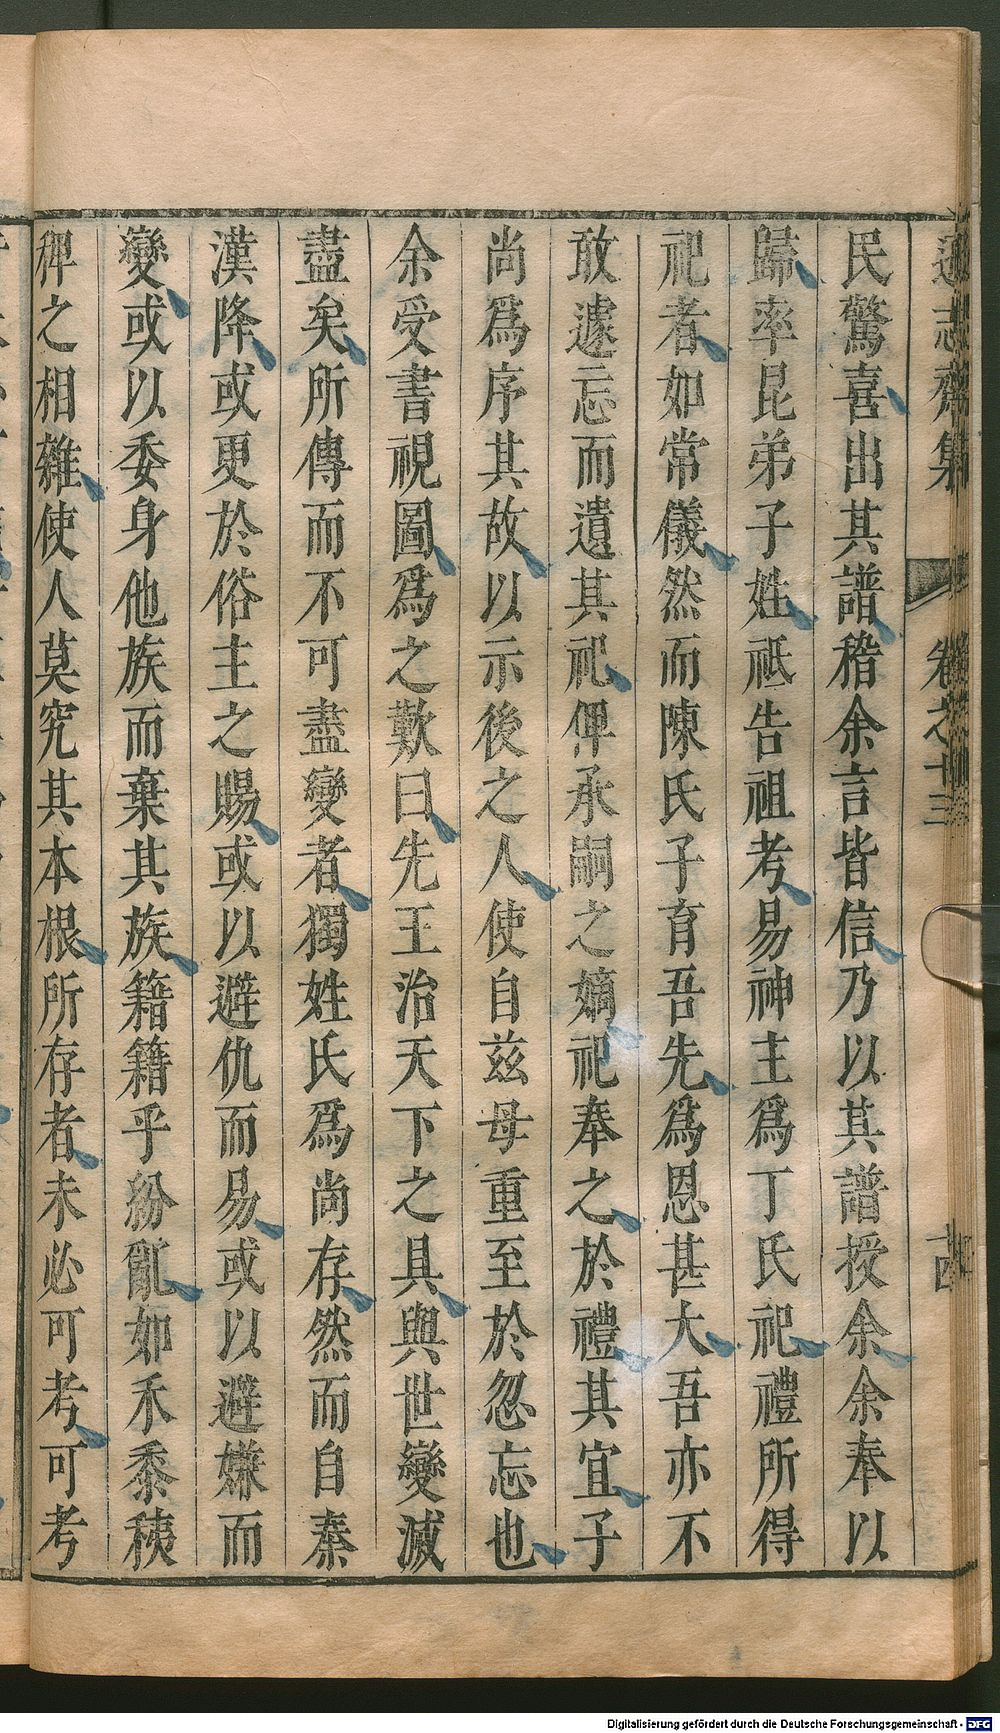 遜志齋集 卷之十三
民驚喜出其譜稽余言皆信乃以其譜授余余奉以
歸率昆弟子姓祇告祖考易神主爲丁氏祀禮所得
祀者如常儀然而陳氏子育吾先爲恩甚大吾亦不
敢遽忘而遺其祀俾承嗣之嫡祀奉之於禮其宜子
尚爲序其故以示後之人使自兹毋重至於忽忘也
余受書視圖爲之歎曰先王治天下之具與世變滅
盡矣所傳而不可盡變者獨姓氏爲尚存然而自秦
漢降或更於俗主之賜或以避仇而易或以避嫌而
變或以委身他族而棄其族籍籍乎紛亂如禾黍稊
稗之相雜使人莫究其本根所存者未必可考可考
Digitalisierung gefördert durch die Deutsche Forschungsgemeinschaft - DFG